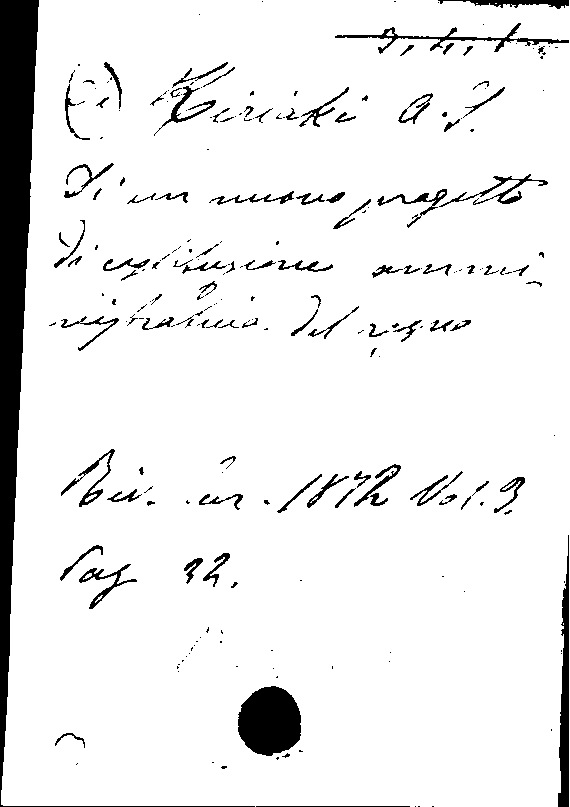 (Di) Kiriaki A. S.
Di un nuovo progetto
di costituzione ammi-
nistrativa del regno
Riv. 1872 Vol. 3.
Pag 32.